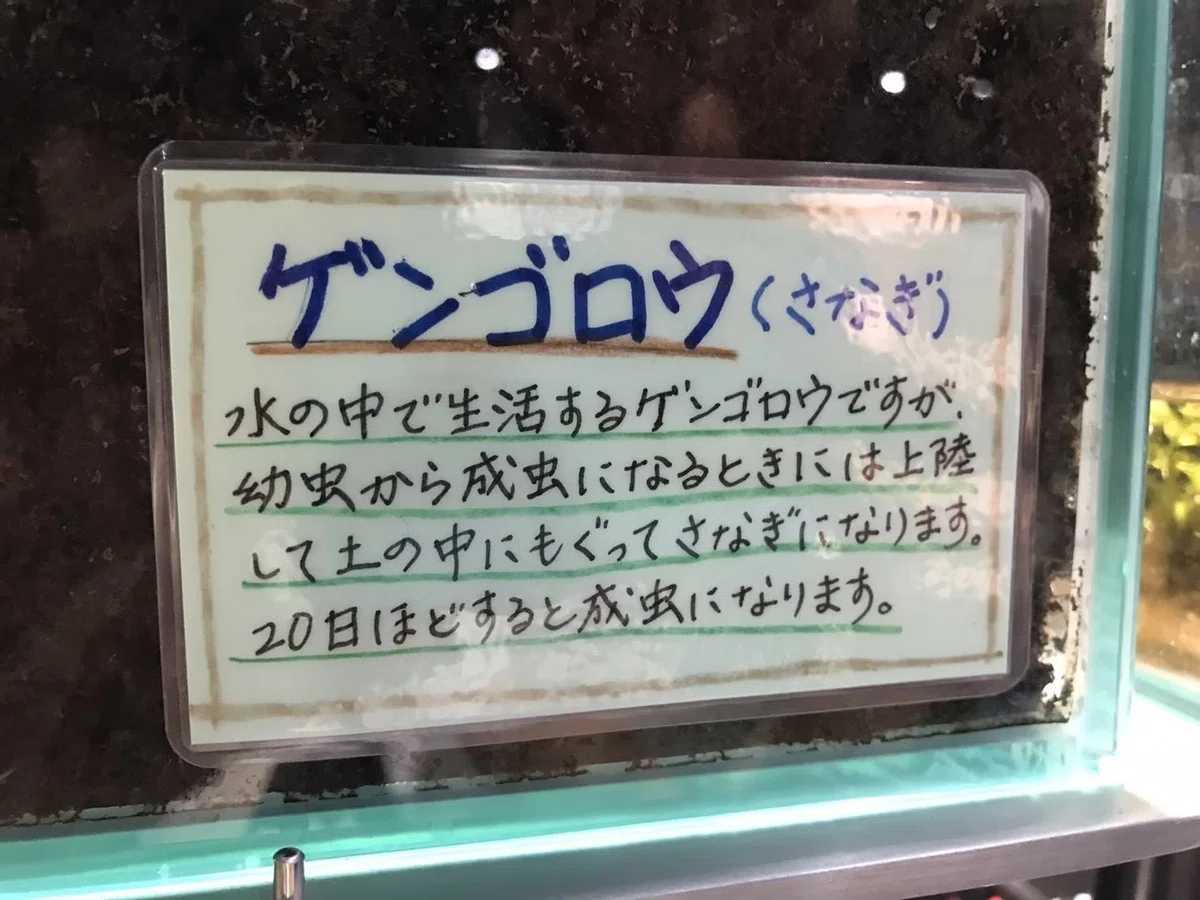 ゲンゴロウ(さなぎ)
水の中で生活するゲンゴロウですが、
幼虫から成虫になるときには上陸
して土の中にもぐってさなぎになります。
20日ほどすると成虫になります。